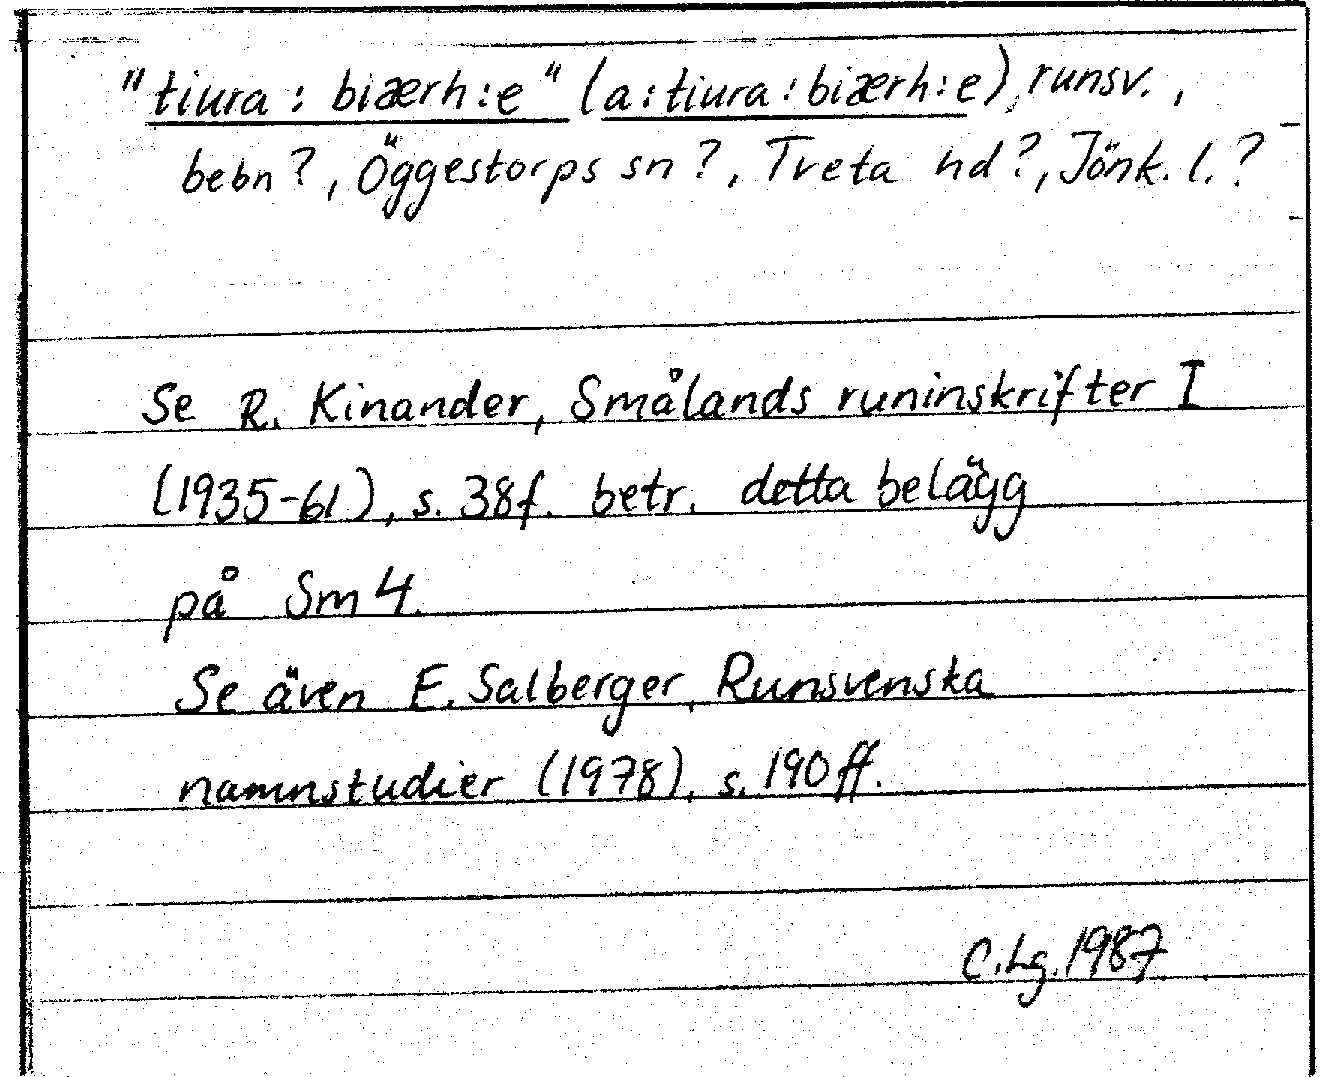 "tiura : biærh:e" (a:tiura:biærh:e), runsv.,
bebn?, Öggestorps sn?, Tveta hd?, Jönk. l.?
Se R. Kinander, Smålands runinskrifter I
(1935-61), s. 38f. betr. detta belägg
på Sm 4.
Se även E. Salberger, Runsvenska
namnstudier (1978), s. 190ff.
C.Lg. 1987.